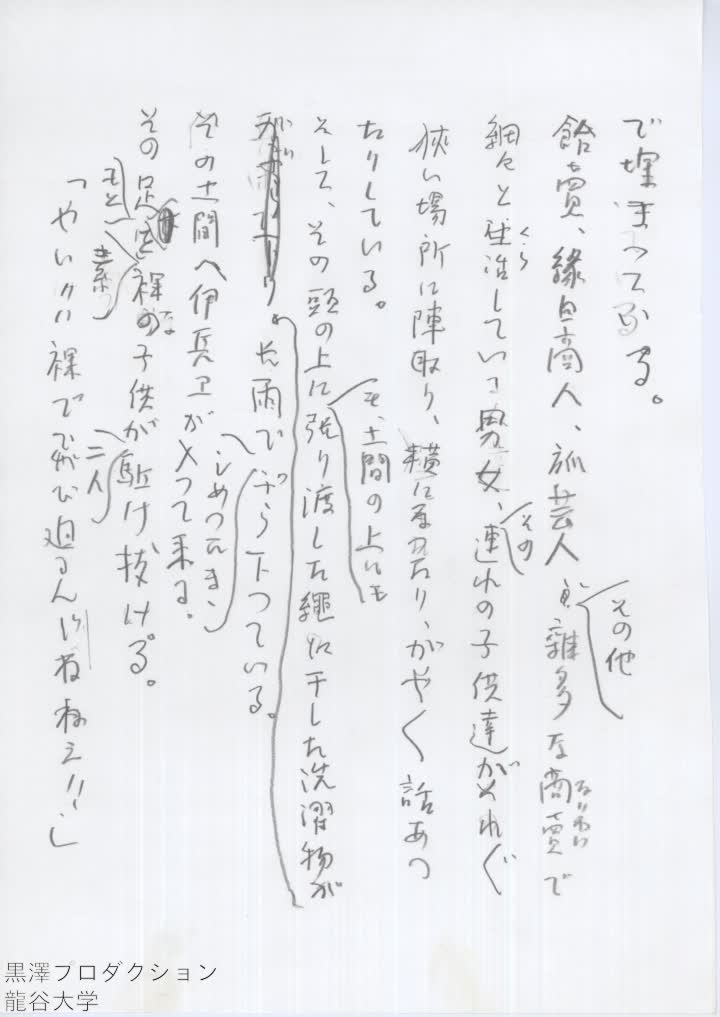 で埋まつてゐる。
その他
飴売、縁日商人、旅芸人、雑多な商売で
なりわい
細々と生活している男女、連れの子供達がそれぞれ
くら
その
狭い場所に陣取り、横になつたり、がやがや話あつ
たりしている。
も、土間の上にも
そして、その頭の上に張り渡した縄に干した洗濯物が
長雨で ぶら下つている。
しめつたまゝ
その土間へ伊兵ヱが入つて来る。
その足もとを裸の子供が駈け抜ける。
素
二人
「やい〃〃裸で飛び廻るんぢねねえ〃〃」
黒澤プロダクション
龍谷大学